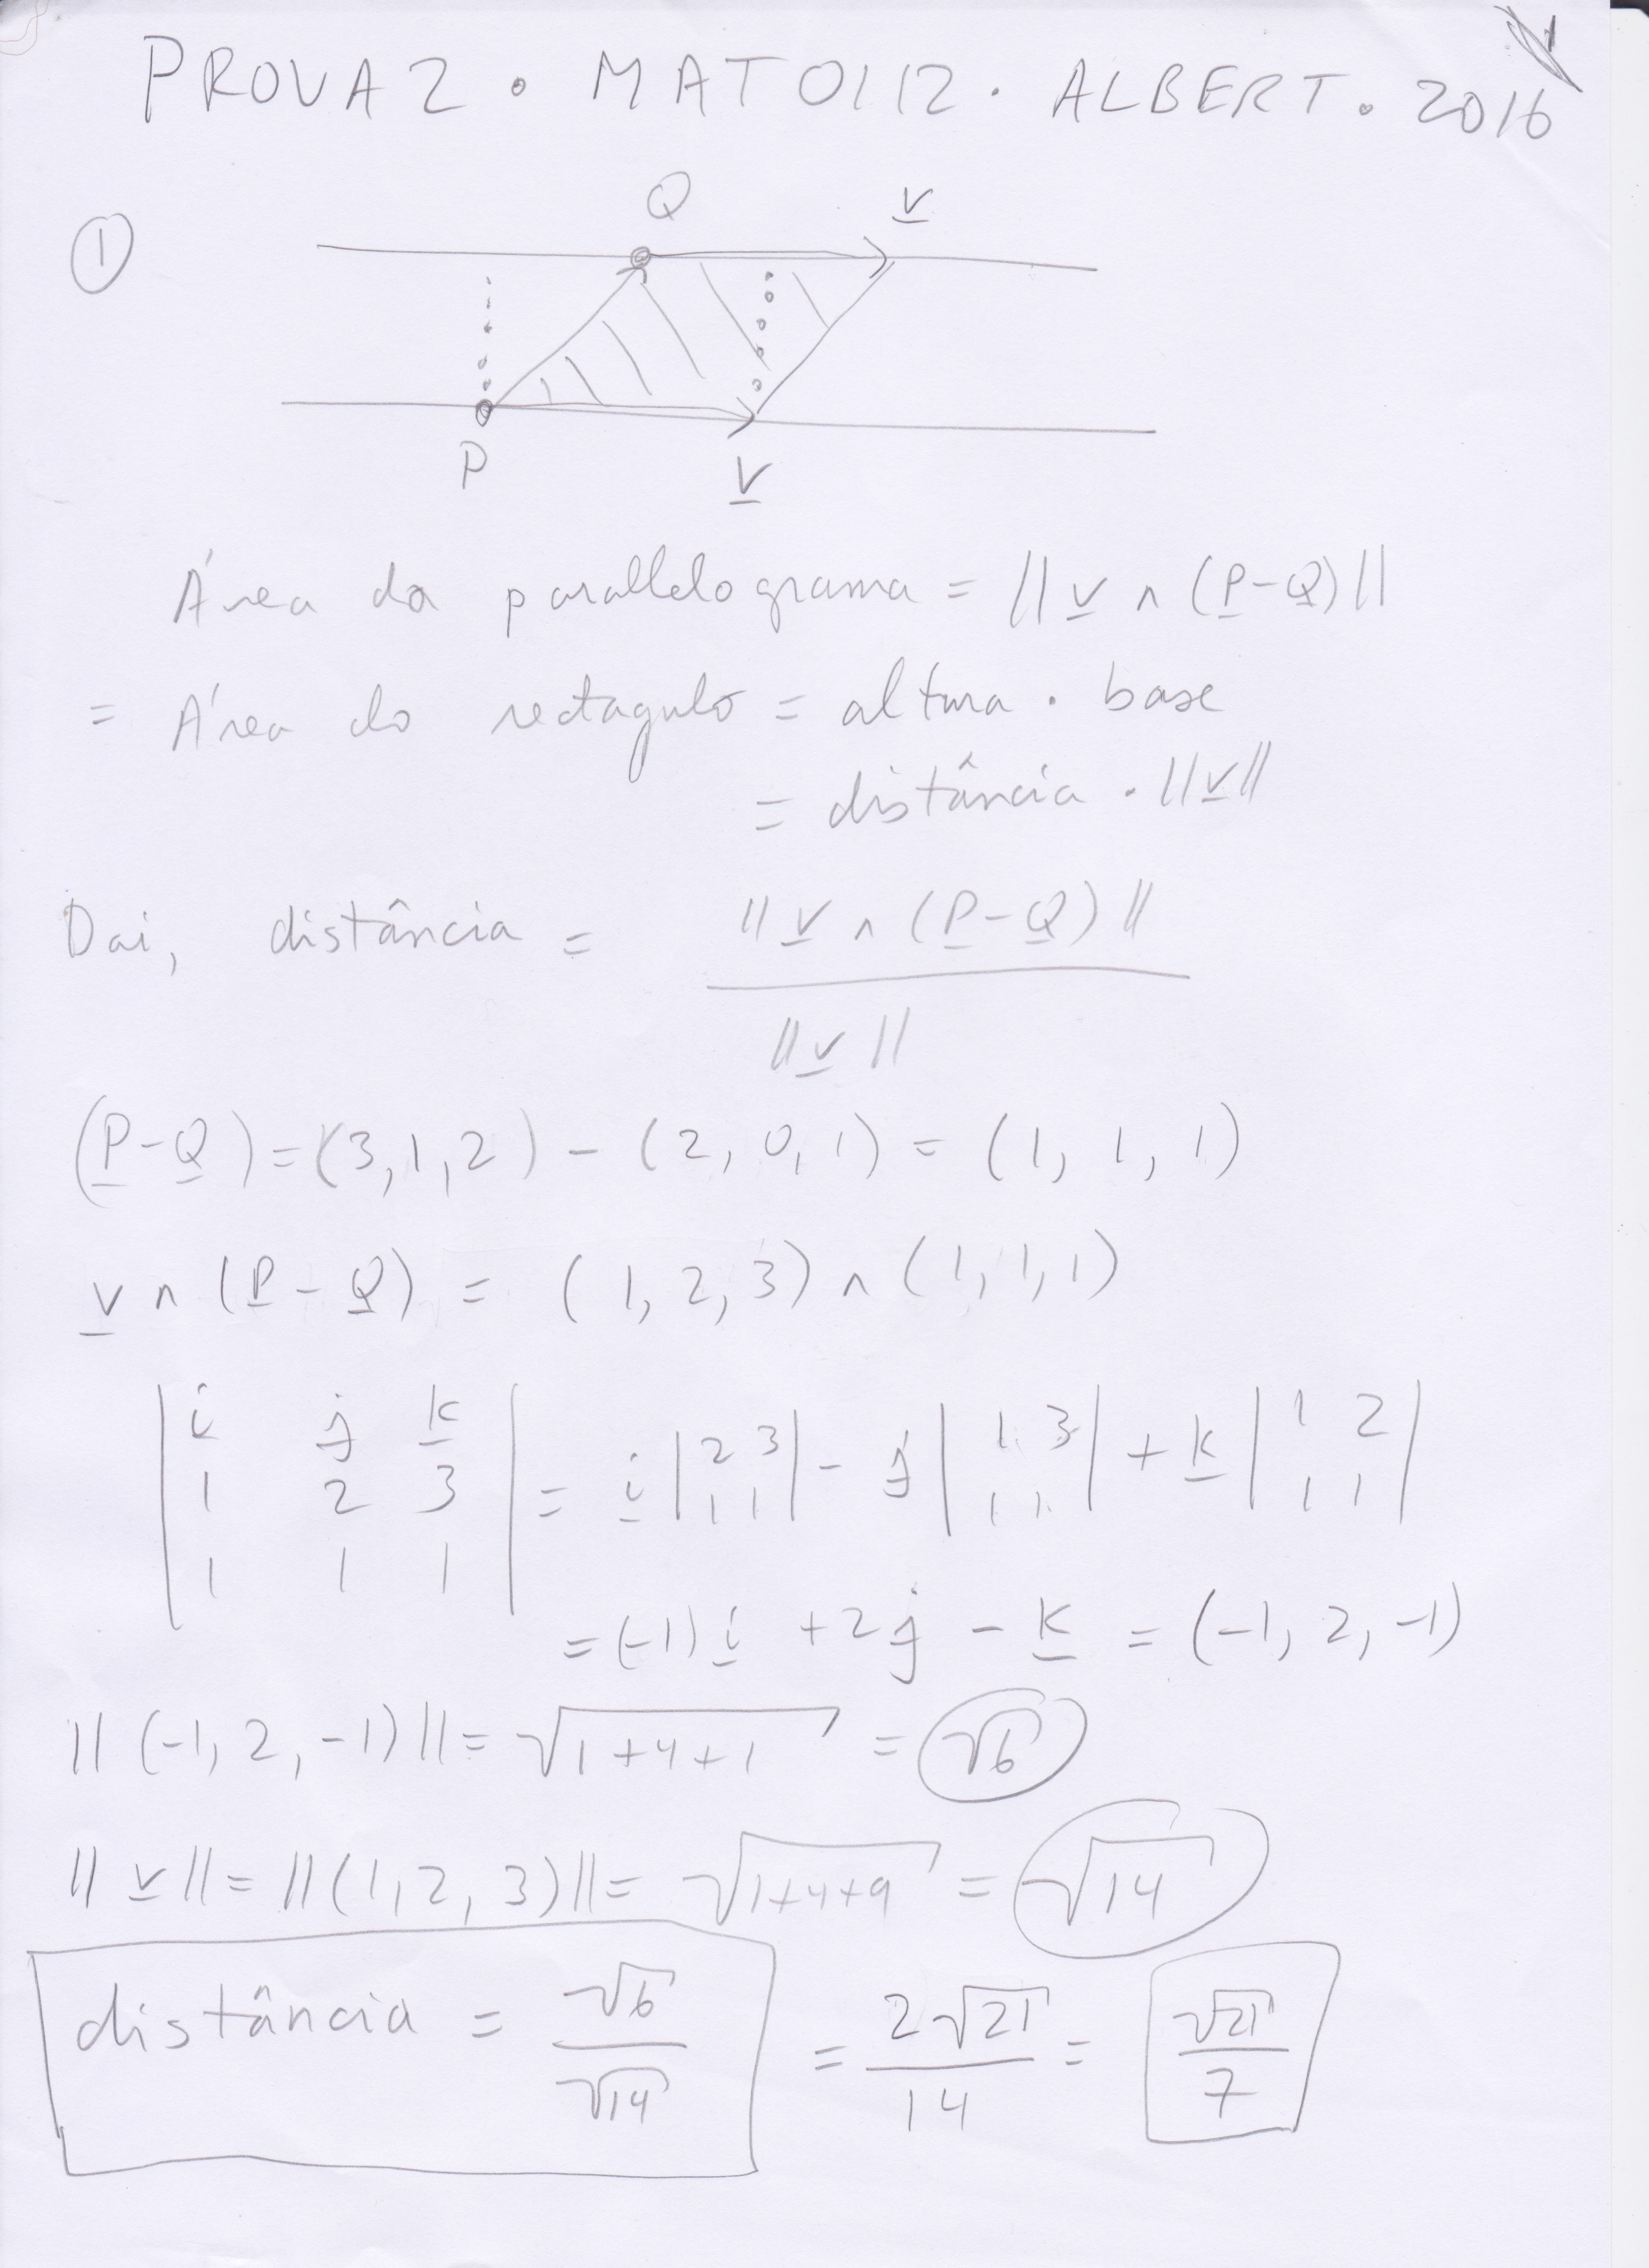 PROVA 2 . MAT0112 . ALBERT . 2016
1
①
Q
v
P
v
Área da parallelograma = || v ∧ (P-Q) ||
= Área do rectagulo = altura . base
= distância . ||v||
Dai, distância = || v ∧ (P-Q) || / || v ||
(P-Q) = (3,1,2) - (2,0,1) = (1,1,1)
v ∧ (P-Q) = (1,2,3) ∧ (1,1,1)
| i j k |
| 1 2 3 | = i | 2 3 | - j | 1 3 | + k | 1 2 |
| 1 1 1 | | 1 1 | | 1 1 | | 1 1 |
= (-1) i + 2 j - k = (-1, 2, -1)
|| (-1, 2, -1) || = √1+4+1 = √6
|| v || = || (1,2,3) || = √1+4+9 = √14
distância = √6 / √14 = 2√21 / 14 = √21 / 7